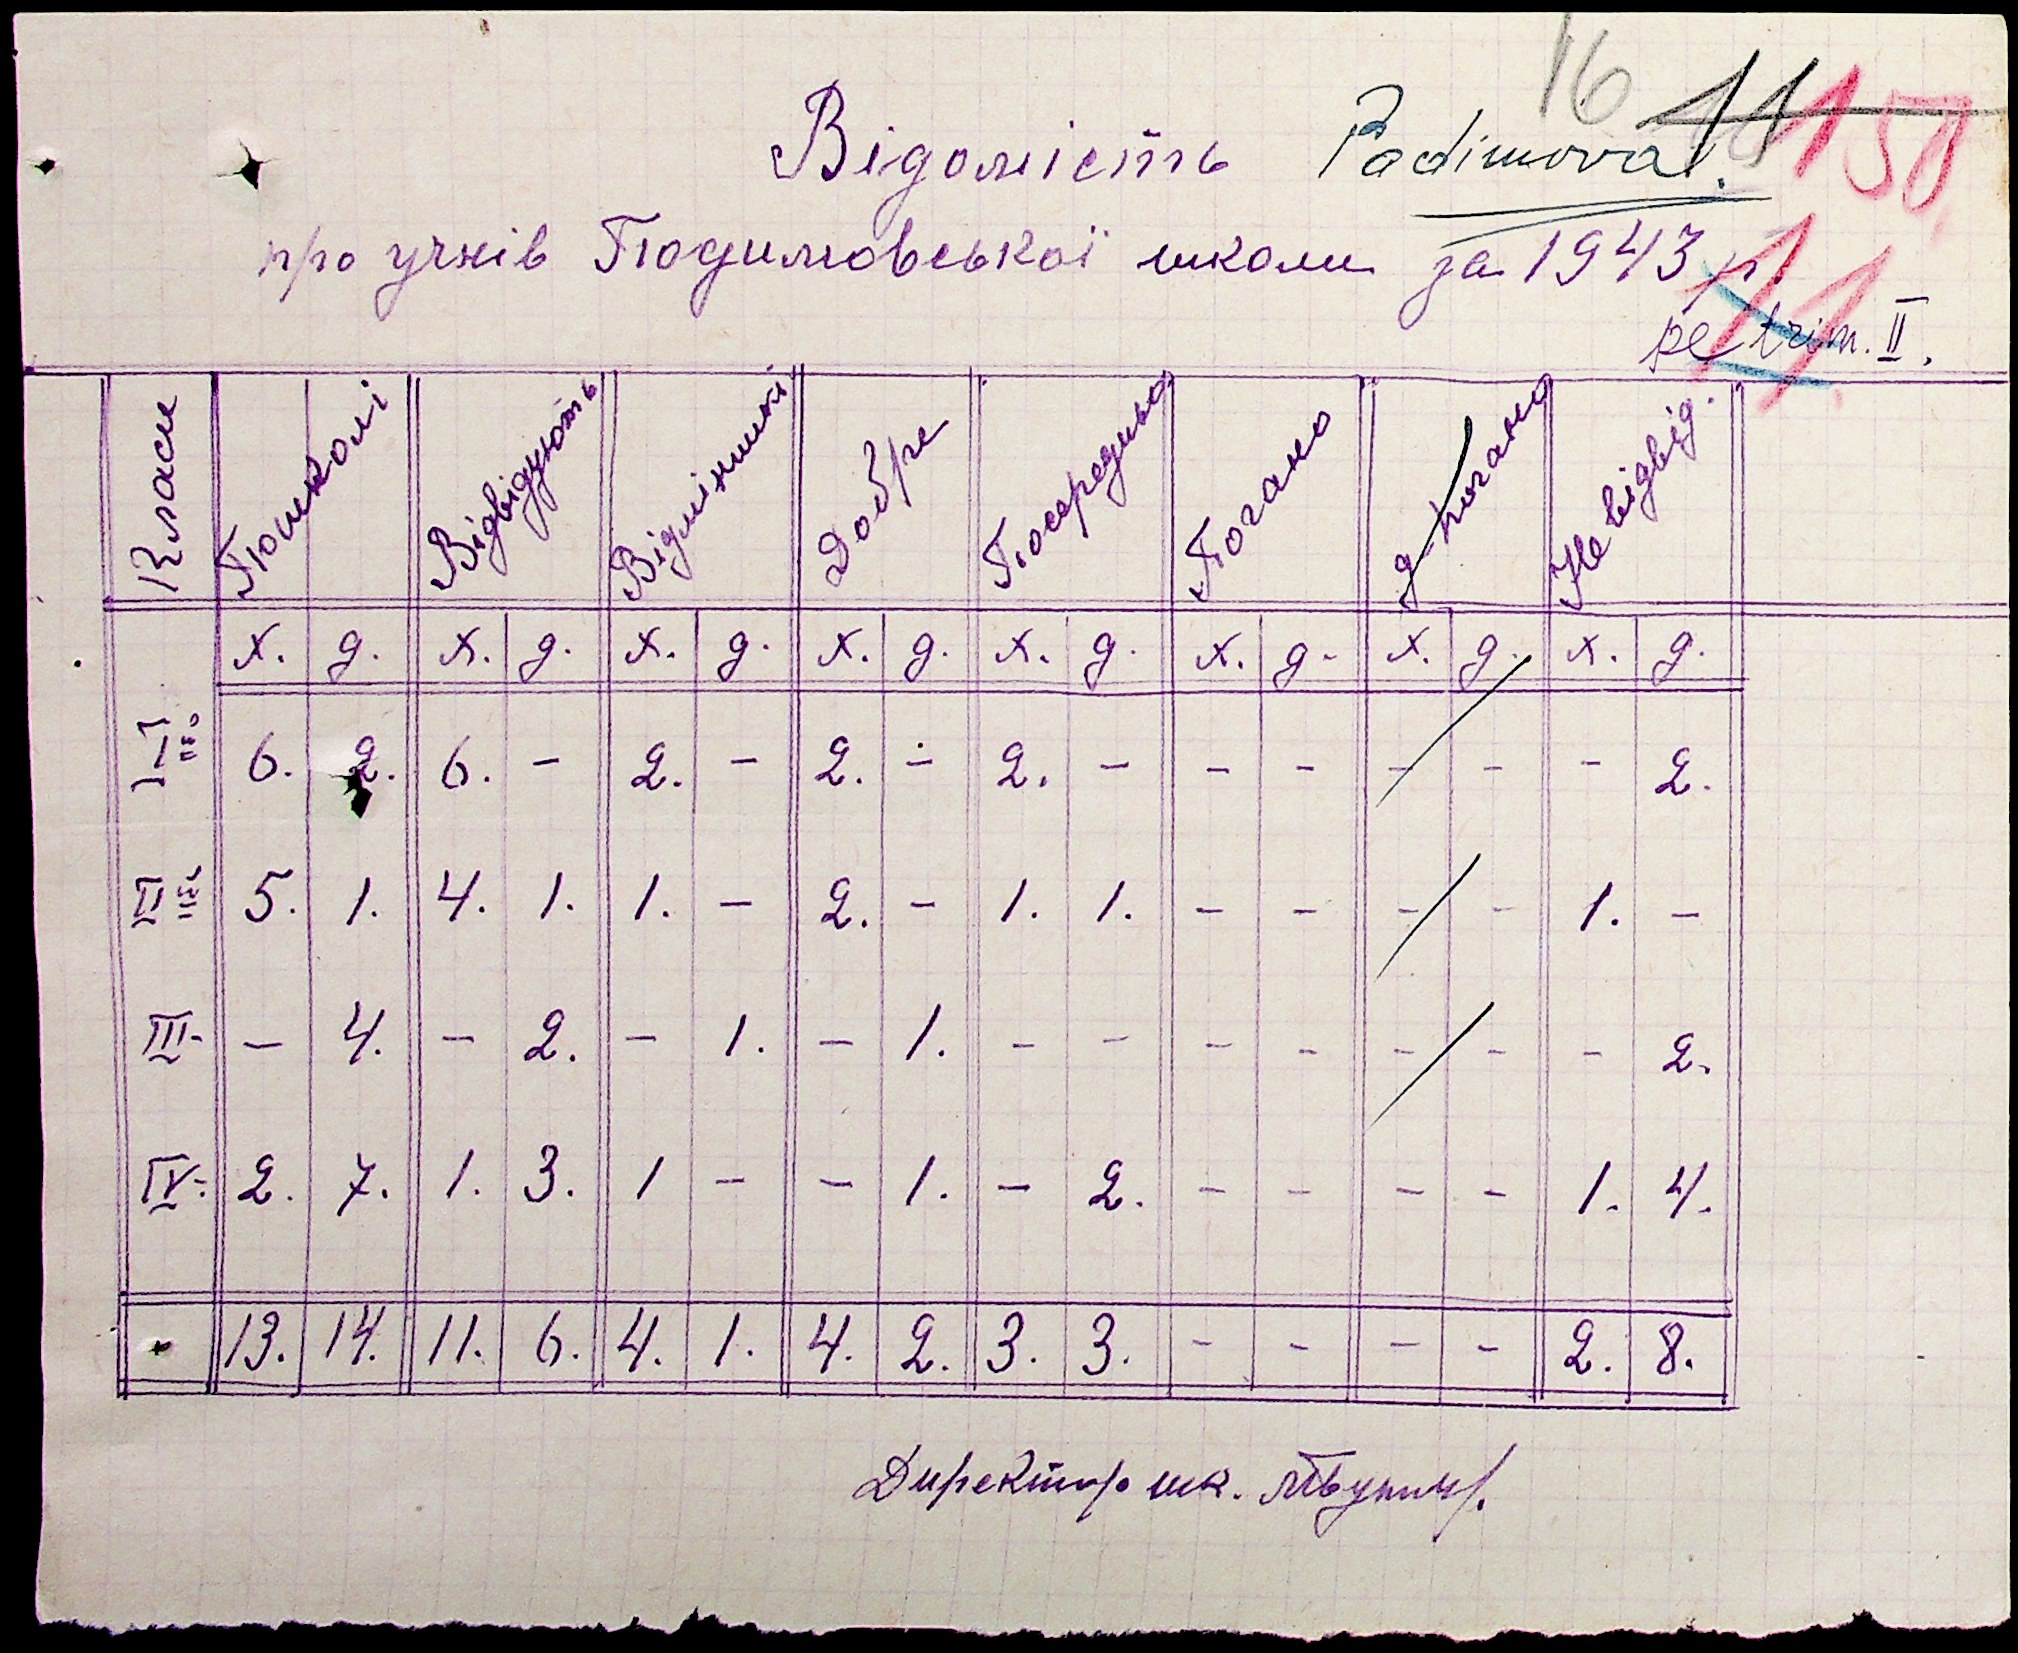 16 11 150
Відомість Padimova.
про учнів Подимовської школи за 1943 р.
11
pe trim. II.
Класи По школі Відвідують Відмінники Добре Посередньо Погано д-погано Не відвід.
х. д. х. д. х. д. х. д. х. д. х. д. х. д. х. д.
I 6. 2. 6. - 2. - 2. - 2. - - - - - - 2.
II 5. 1. 4. 1. 1. - 2. - 1. 1. - - - - 1. -
III - 4. - 2. - 1. - 1. - - - - - - - 2.
IV 2. 7. 1. 3. 1 - - 1. - 2. - - - - 1. 4.
13. 14. 11. 6. 4. 1. 4. 2. 3. 3. - - - - 2. 8.
Директор шк.